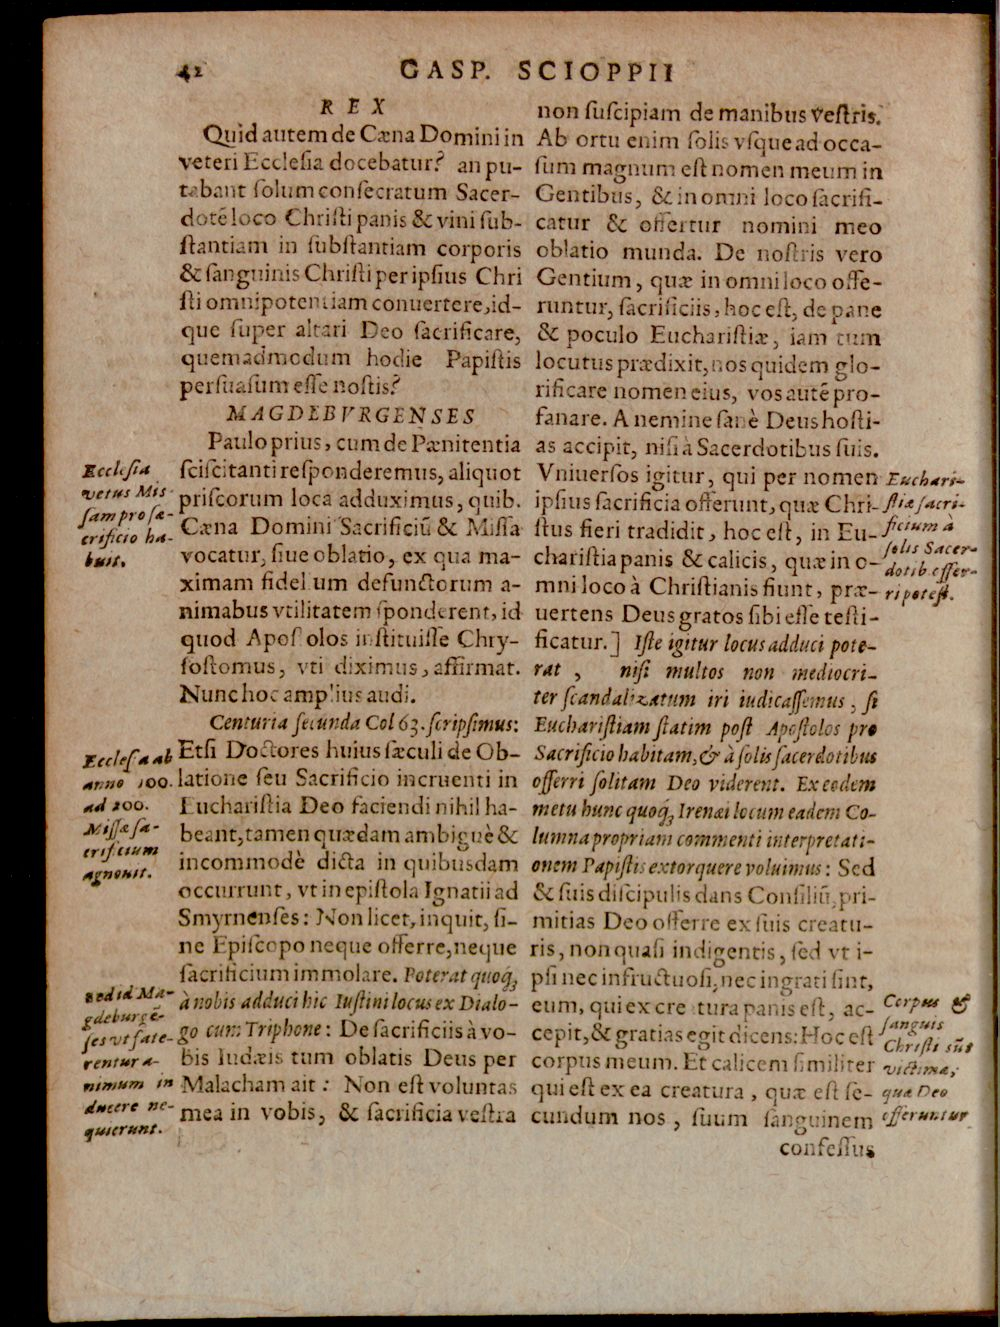 42
GASP. SCIOPPII
REX
Quid autem de Cæna Domini in
veteri Ecclesia docebatur? an pu-
tabant solum consecratum Sacer-
dotē loco Christi panis & vini sub-
stantiam in substantiam corporis
& sanguinis Christi per ipsius Chri
sti omnipotentiam conuertere, id-
que super altari Deo sacrificare,
quemadmodum hodie Papistis
persuasum esse nostis?
MAGDEBVRGENSES
Paulo prius, cum de Pænitentia
sciscitanti responderemus, aliquot
priscorum loca adduximus, quib.
Cæna Domini Sacrificiū & Missa
vocatur, siue oblatio, ex qua ma-
ximam fidelium defunctorum a-
nimabus vtilitatem sponderent, id
quod Apostolos instituisse Chry-
sostomus, vti diximus, affirmat.
Nunc hoc amplius audi.
Centuria secunda Col 63. scripsimus:
Etsi Doctores huius sæculi de Ob-
latione seu Sacrificio incruenti in
Eucharistia Deo faciendi nihil ha-
beant, tamen quædam ambiguè &
incommodè dicta in quibusdam
occurrunt, vt in epistola Ignatii ad
Smyrnenses: Non licet, inquit, si-
ne Episcopo neque offerre, neque
sacrificium immolare. Poterat quoq́;
à nobis adduci hic Iustini locus ex Dialo-
go cum Triphone: De sacrificiis à vo-
bis Iudæis tum oblatis Deus per
Malacham ait: Non est voluntas
mea in vobis, & sacrificia vestra
Ecclesia
vetus Mis-
sam pro sa-
crificio ha-
buit.
Ecclesa ab
anno 100.
ad 200.
Missæ sa-
crificium
agnouit.
sed id Ma-
gdeburgē-
ses vt fate-
rentur a-
nimum in
ducere ne-
quierunt.
non suscipiam de manibus vestris.
Ab ortu enim solis vsque ad occa-
sum magnum est nomen meum in
Gentibus, & in omni loco sacrifi-
catur & offertur nomini meo
oblatio munda. De nostris vero
Gentium, quæ in omni loco offe-
runtur, sacrificiis, hoc est, de pane
& poculo Eucharistiæ, iam tum
locutus prædixit, nos quidem glo-
rificare nomen eius, vos autē pro-
fanare. A nemine sanè Deus hosti-
as accipit, nisi à Sacerdotibus suis.
Vniuersos igitur, qui per nomen
ipsius sacrificia offerunt, quæ Chri-
stus fieri tradidit, hoc est, in Eu-
charistia panis & calicis, quæ in o-
mni loco à Christianis fiunt, præ-
uertens Deus gratos sibi esse testi-
ficatur.] Iste igitur locus adduci pote-
rat, nisi multos non mediocri-
ter scandalizatum iri iudicassemus, si
Eucharistiam statim post Apostolos pro
Sacrificio habitam, & à solis sacerdotibus
offerri solitam Deo viderent. Ex eodem
metu hunc quoq́; Irenæi locum eadem Co-
lumna propriam commenti interpretati-
onem Papistis extorquere voluimus: Sed
& suis discipulis dans Consiliū, pri-
mitias Deo offerre ex suis creatu-
ris, non quasi indigentis, sed vt i-
psi nec infructuosi, nec ingrati sint,
eum, qui ex cretura panis est, ac-
cepit, & gratias egit dicens: Hoc est
corpus meum. Et calicem similiter
qui est ex ea creatura, quæ est se-
cundum nos, suum sanguinem
confessus
Euchari-
stiæ sacri-
ficium à
solis Sacer-
dotib. offer-
ri potest.
Corpus &
sanguis
Christi sūt
victima,
quæ Deo
offeruntur